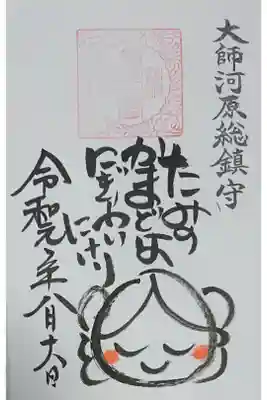 大師河原総鎮守
たみの
かまどは
にぎわい
にけり
令和元年八月